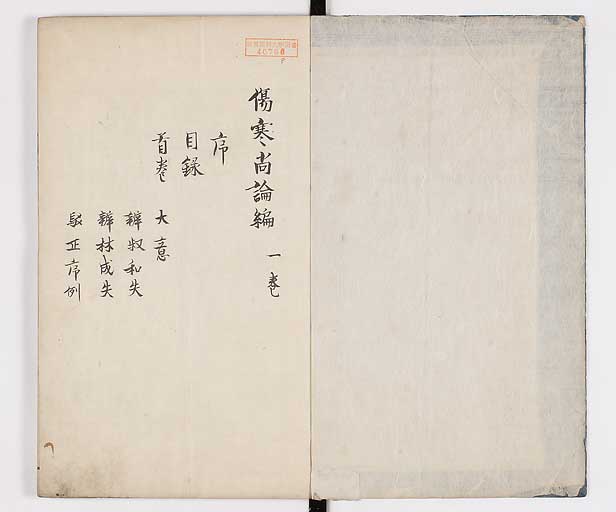 傷寒尚論編 一卷
序
目錄
首卷 大意
辨叔和失
辨林成失
駁正序例
46760